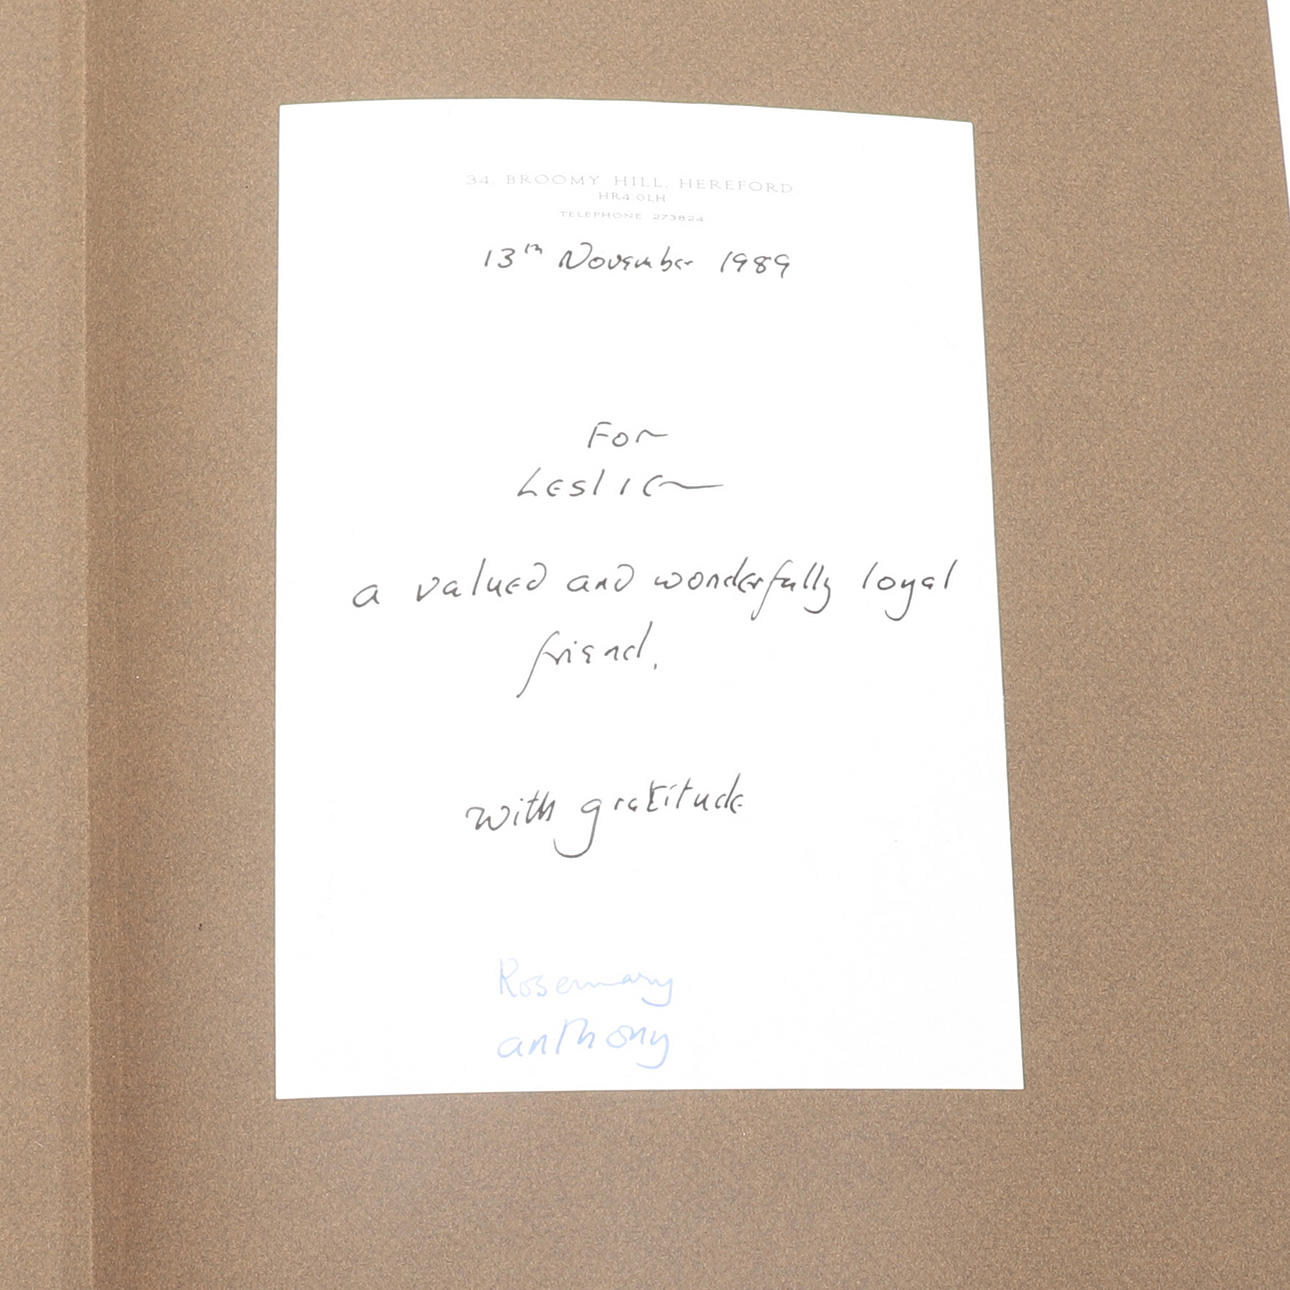 34, BROOMY HILL, HEREFORD
HR4 0LH
TELEPHONE 273824
13th November 1989
For
Leslie
a valued and wonderfully loyal
friend.
with gratitude
Rosemary
anthony